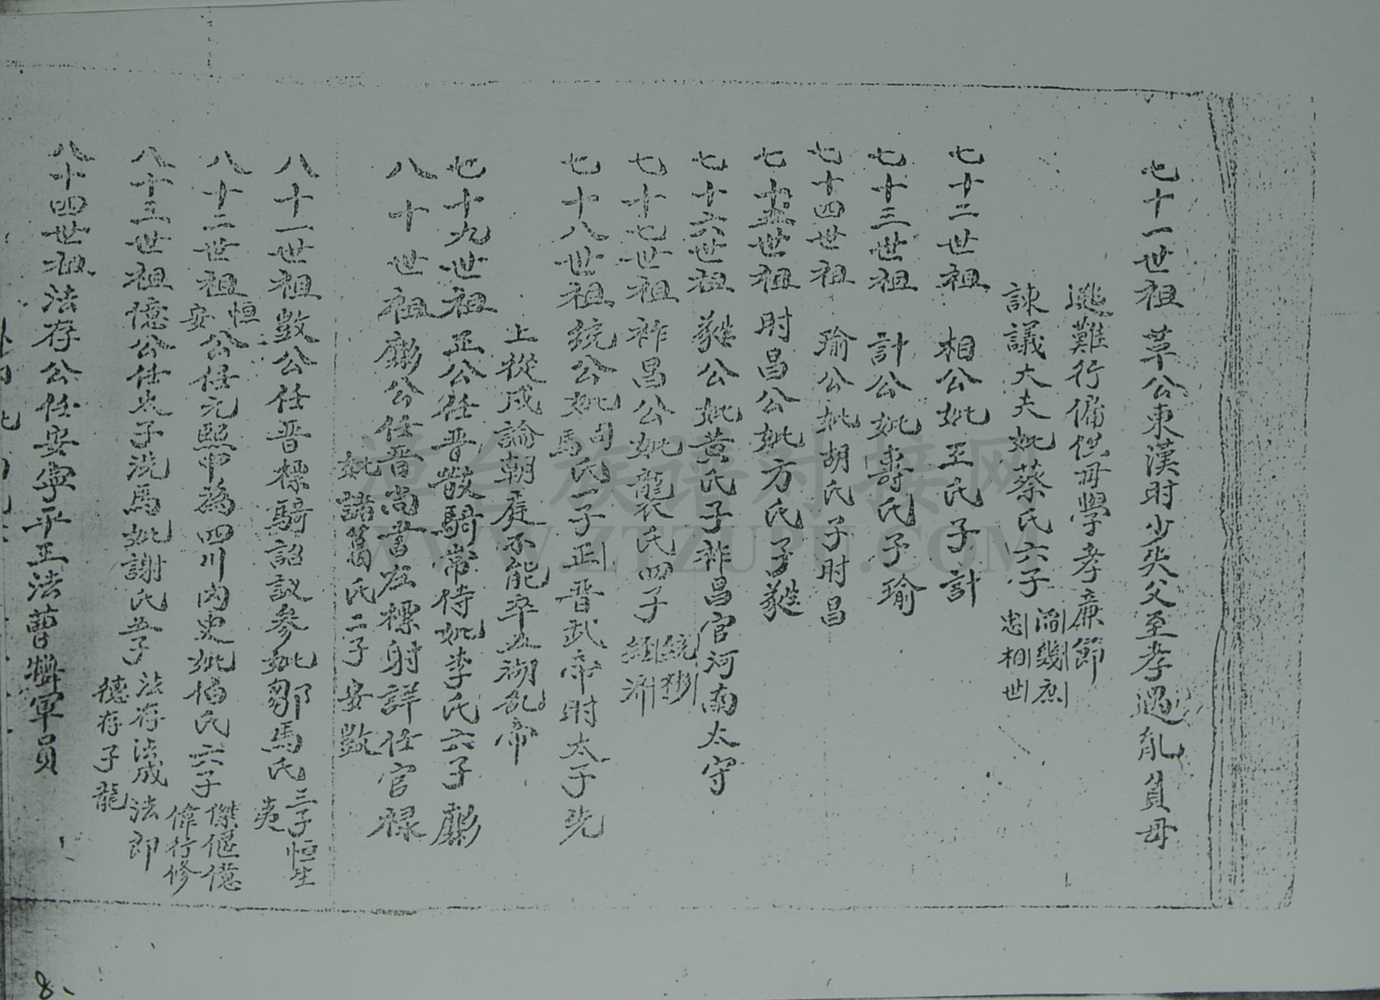 七十一世祖 革公東漢时少失父至孝遇乱負母
逃難行傭供母學孝廉節
諫議大夫妣蔡氏六子 滔幾庶 忠相世
七十二世祖 相公妣王氏子計
七十三世祖 計公妣壽氏子瑜
七十四世祖 瑜公妣胡氏子时昌
七十五世祖 时昌公妣方氏子蕤
七十六世祖 蕤公妣黄氏子祚昌官河南太守
七十七世祖祚昌公妣龔氏四子 統 濟
七十八世祖統公妣司馬氏一子正晋武帝时太子洗
上從戎論朝庭不能卒五湖乱帝
七十九世祖正公任晋散騎常侍妣李氏六子彪
八十世祖彪公任晋尚書左標射詳任官禄
妣諸葛氏二子安敳
八十一世祖敳公任晋標騎諮议参妣鄒馬氏三子恒生夷
八十二世祖恒安公任元熙中為四川内史妣 氏六子 傑偃億 偉行修
八十三世祖億公任太子洗馬妣謝氏五子 法存法成法即 德存子龍
八十四世祖法存公任安寧平正法曹 軍員
8、
WWW.ZTZUPU.COM